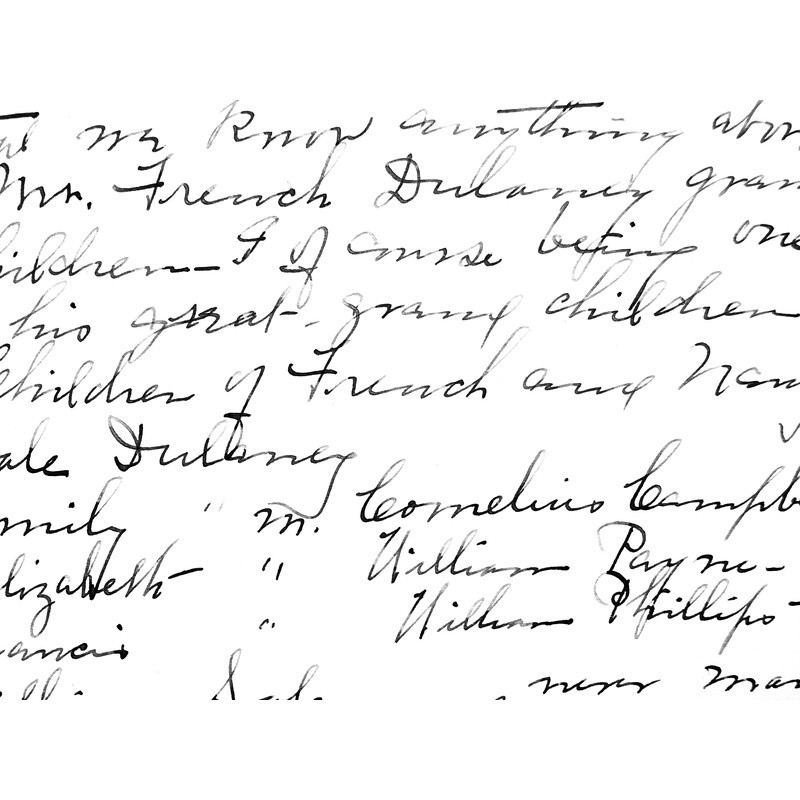 we know anything abo
Mr. French Dulaney gran
hildren – I of course being one
his great-grand children
Children of French and Nan
ale Dulaney
mily " m. Cornelius Campb
lizabeth " William Payne-
ancis " William Phillips-
never mar